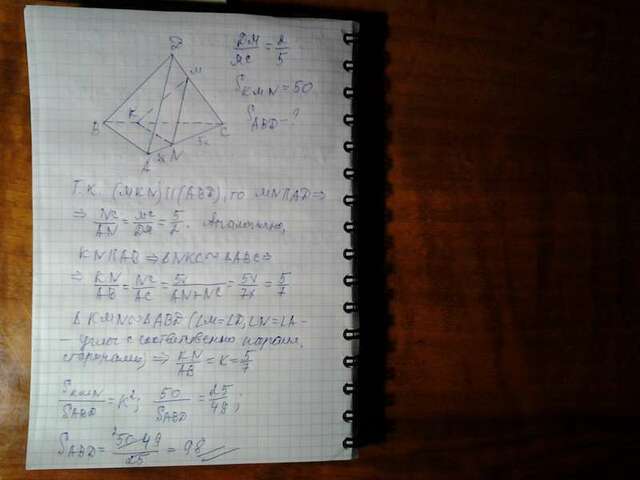 D
M
K
B
C
A
N
2x
5x
DM/MC = 2/5
S_KMN = 50
S_ABD - ?
Т.К. (MKN) || (ABD), то MN || AD ⇒
⇒ NC/AN = MC/DM = 5/2. Аналогично,
KN || AB ⇒ ΔNKC ~ ΔABC ⇒
⇒ KN/AB = NC/AC = 5x/AN+NC = 5x/7x = 5/7
Δ KMN ~ Δ ABD (∠M=∠D, ∠N=∠A -
- углы с соответственно паралл.
сторонами) ⇒ KN/AB = K = 5/7
S_KMN/S_ABD = K²; 50/S_ABD = 25/49;
S_ABD = 50·49/25 = 98